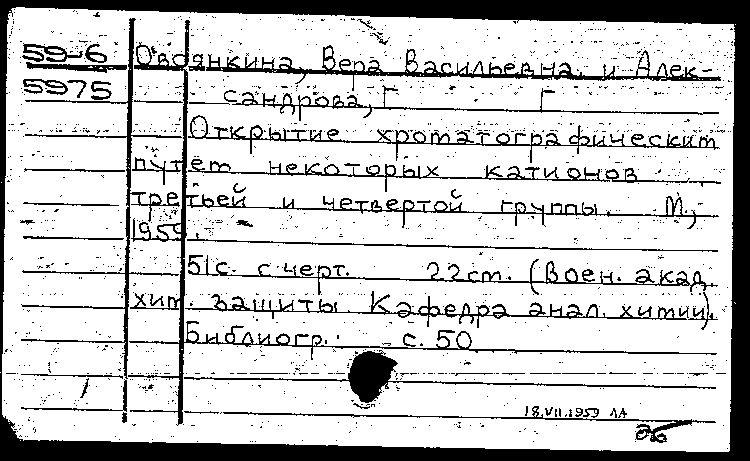 59-6 Овсянкина, Вера Васильевна. и Алек-
5975 сандрова, Г Г
Открытие хроматографическим
путем некоторых катионов
третьей и четвертой группы. М.,
1959.
51с. с черт. 22см. (Воен. акад.
хим. защиты. Кафедра анал. химии).
Библиогр.: с. 50
18.VII.1959 ЛА